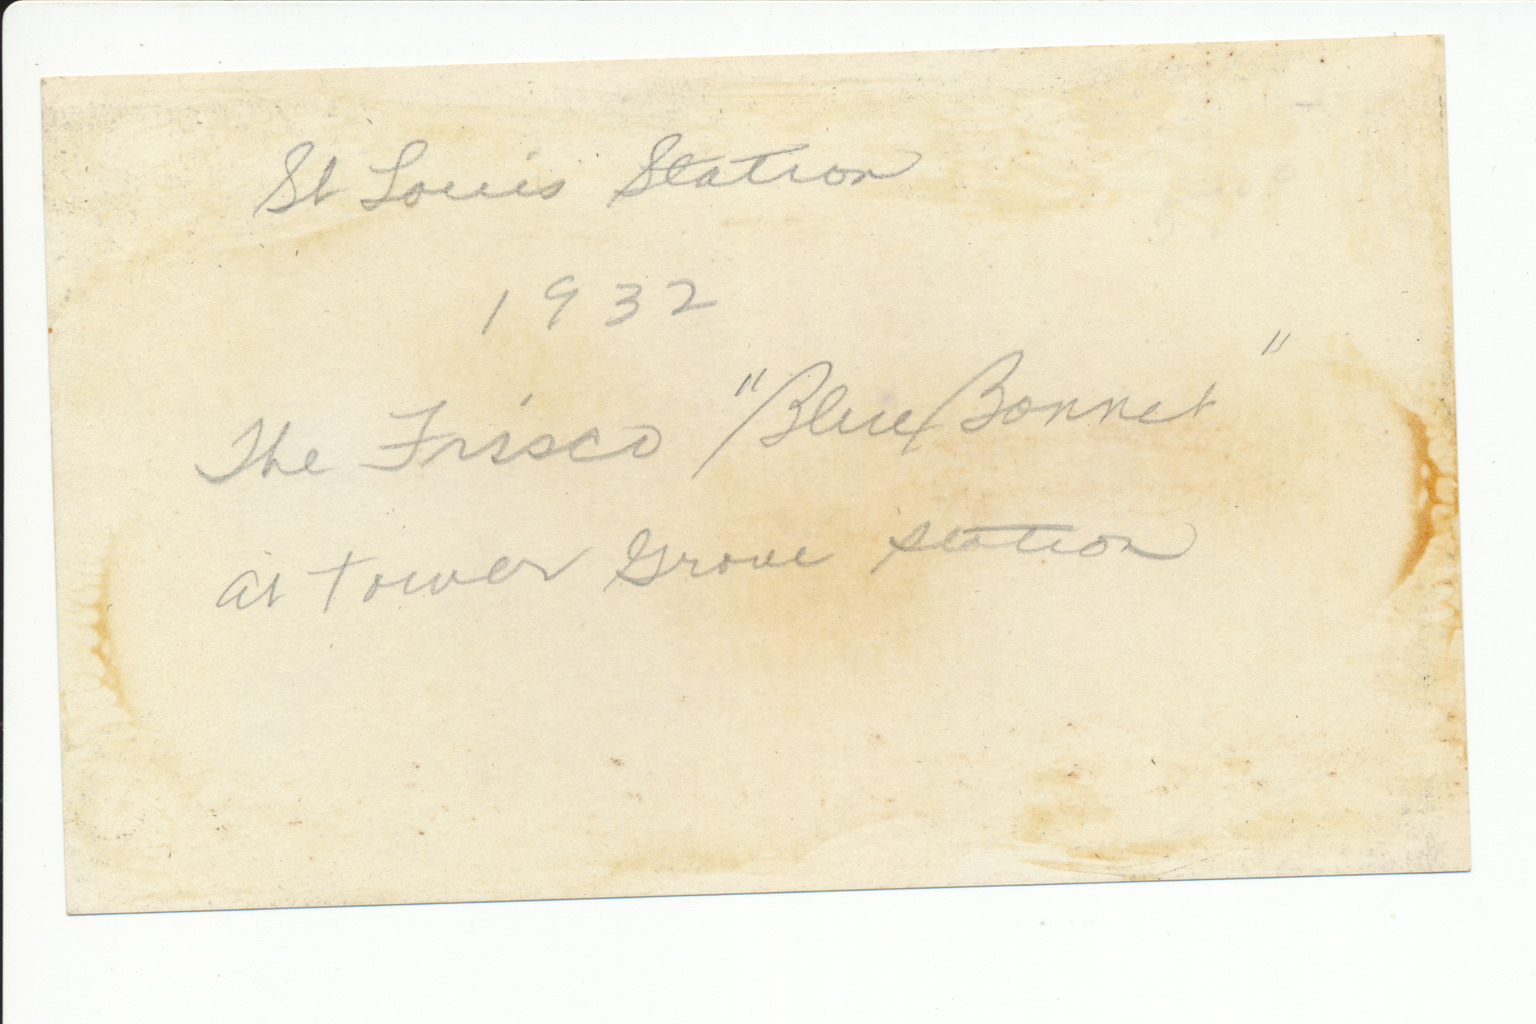 St Louis Station
1932
The Frisco "Blue Bonnet"
at Tower Grove station